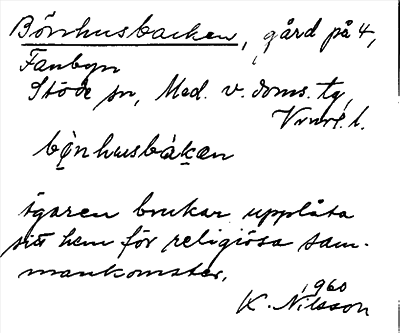 Bönhusbacken, gård på 4,
Fanbyn
Stöde sn, Med. v. doms. tg,
Vnrl. l.
bönhusbaken
ägaren brukar upplåta
sitt hem för religiösa sam-
mankomster.
1960
K. Nilsson